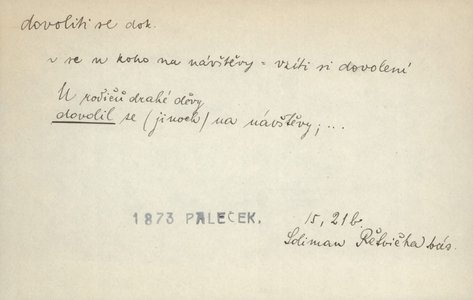 dovoliti se dok.
v se u koho na návštěvy = vzíti si dovolení
U rodičů drahé děvy
dovolil se (jinoch) na návštěvy; ...
1873 PALEČEK.
15, 21b.
Řetvička bás.